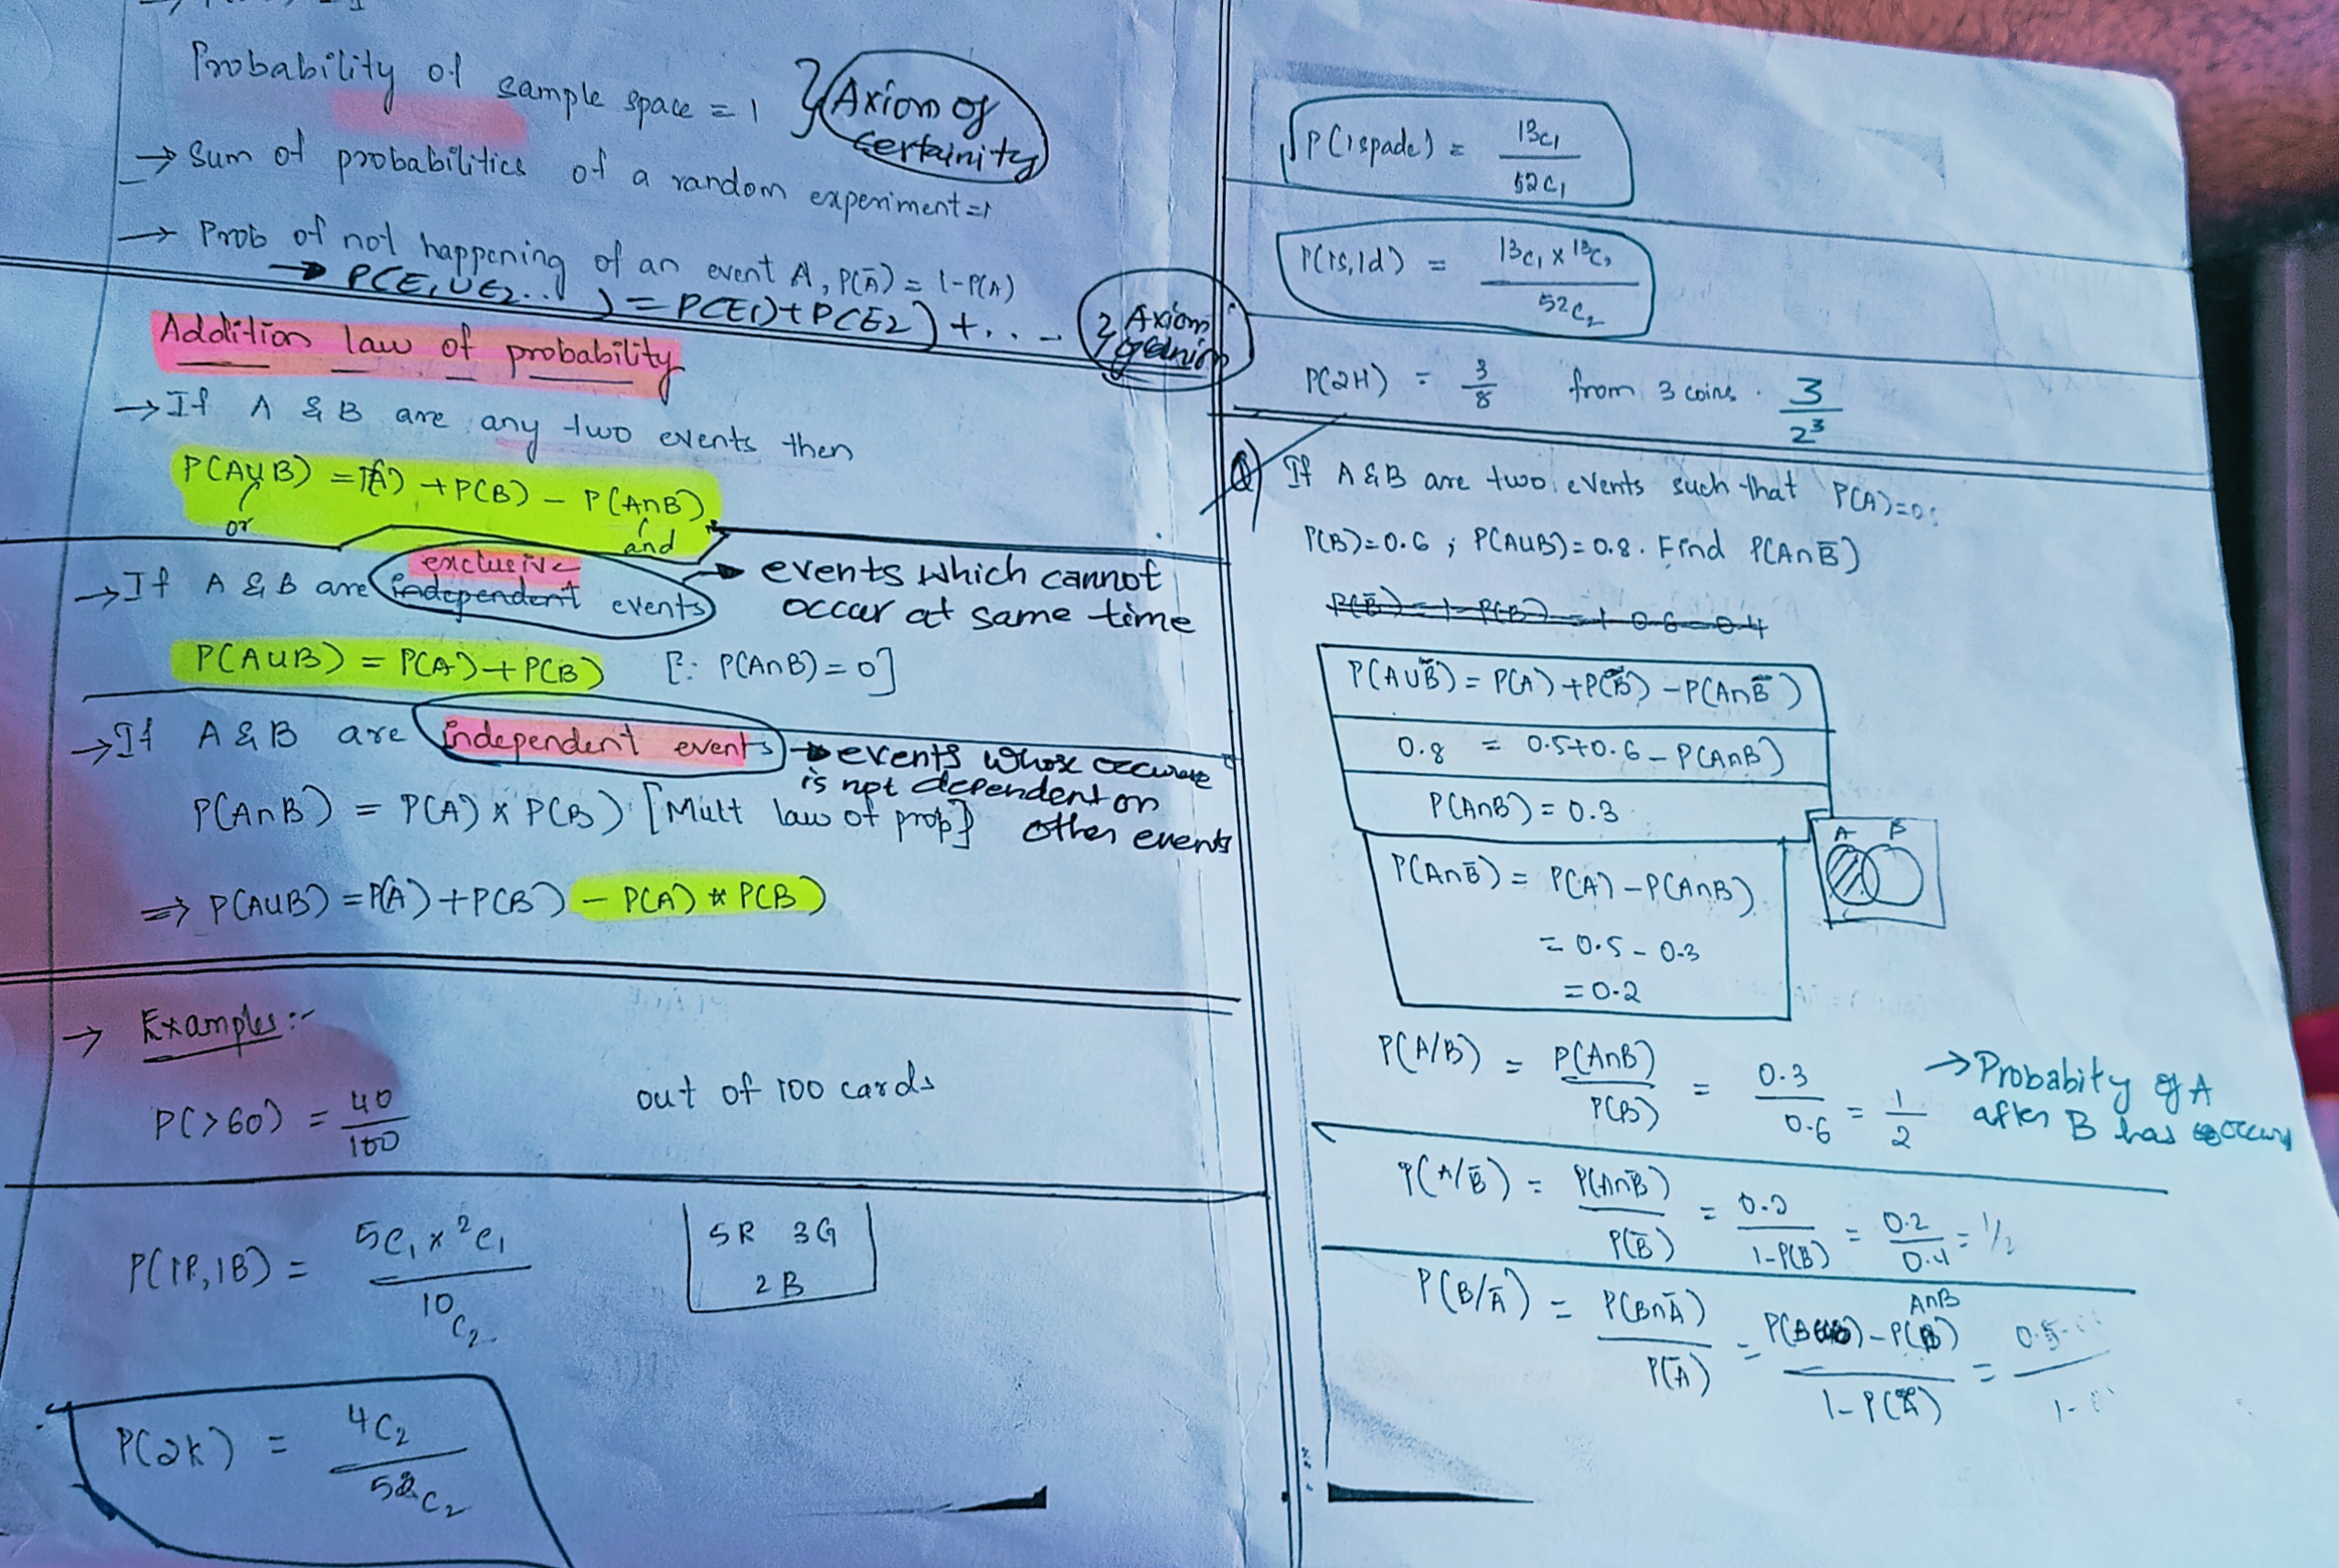 Probability of sample space = 1 } Axiom of certainity
→ Sum of probabilities of a random experiment=1
→ Prob of not happening of an event A, P(Ā) = 1-P(A)
→ P(E1 U E2...) = P(E1)+P(E2)+... } Axiom
Addition law of probability
→ If A & B are any two events then
P(AUB) = P(A) + P(B) - P(A∩B)
or and
→ If A & B are exclusive independent events → events which cannot
occur at same time
P(AUB) = P(A) + P(B) [∵ P(A∩B) = 0]
→ If A & B are independent events → events whose
is not dependent on
other events
P(A∩B) = P(A) x P(B) [Mult law of prop]
⇒ P(AUB) = P(A) + P(B) - P(A) * P(B)
→ Examples:-
P(>60) = 40/100 out of 100 cards
P(1R,1B) = 5C1 x 2C1 / 10C2
5R 3G
2B
P(2K) = 4C2 / 52C2
P(1spade) = 13C1 / 52C1
P(1s,1d) = 13C1 x 13C1 / 52C2
P(2H) = 3/8 from 3 coins. 3/2³
Q) If A & B are two events such that P(A)=0.
P(B)=0.6 ; P(AUB)=0.8. Find P(A∩B̄)
P(B̄) = 1-P(B) = 1-0.6=0.4
P(AUB) = P(A) + P(B) - P(A∩B)
0.8 = 0.5+0.6 - P(A∩B)
P(A∩B) = 0.3
A B
P(A∩B̄) = P(A) - P(A∩B)
= 0.5 - 0.3
= 0.2
P(A/B) = P(A∩B)/P(B) = 0.3/0.6 = 1/2 → Probabity of A
after B has
P(A/B̄) = P(A∩B̄)/P(B̄) = 0.2/1-P(B) = 0.2/0.4 = 1/2
P(B/Ā) = P(B∩Ā)/P(Ā) = P(B) - P(A∩B) / 1-P(A) = 0.5